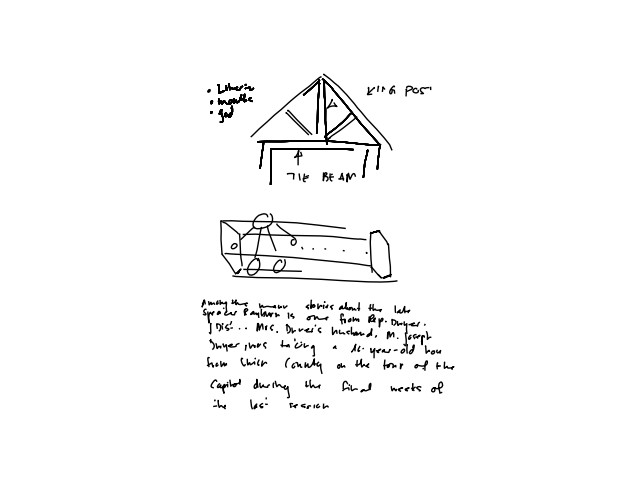 KING POST
TIE BEAM
Among the many stories about the late
Speaker Rayburn is one from Rep. Dwyer.
Mrs. Dwyer's husband, M. Joseph
Dwyer, was taking a year-old boy
from Union County on the tour of the
Capitol during the final weeks of
the last session